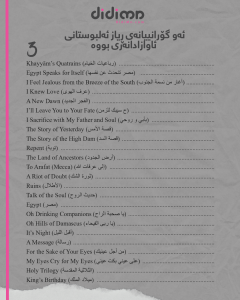 didiman
ئەو گۆرانییانەی ڕیاز ئەلسونباتی
ئاوازدانەری بووە
3
Khayyám's Quatrains (رباعيات الخيام)
Egypt Speaks for Itself (مصر تتحدث عن نفسها)
I Feel Jealous from the Breeze of the South (أغار من نسمة الجنوب)
I Knew Love (عرف الهوى)
A New Dawn (الفجر الجديد)
I'll Leave You to Your Fate (ح سيبك للزمن)
I Sacrifice with My Father and Soul (بأبي و روحي)
The Story of Yesterday (قصة الأمس)
The Story of the High Dam (قصة السد)
Repent (توبة)
The Land of Ancestors (أرض الجدود)
To Arafat (Mecca) (إلى عرفات الله)
A Riot of Doubt (ثورة الشك)
Ruins (الأطلال)
Talk of the Soul (حديث الروح)
Egypt (مصر)
Oh Drinking Companions (يا صحبة الراح)
Oh Hills of Damascus (يا ربى الفيحاء)
It's Night (أقبل الليل)
A Message (رسالة)
For the Sake of Your Eyes (من أجل عينيك)
My Eyes Cry for My Eyes (على عيني بكت عيني)
Holy Trilogy (الثلاثية المقدسة)
King's Birthday (ميلاد الملك)